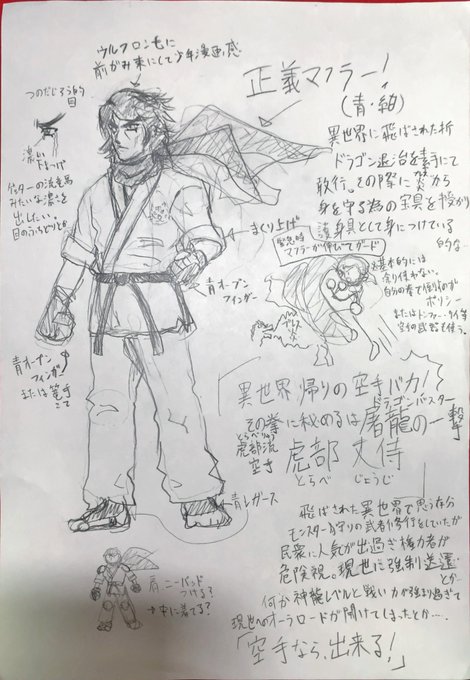 ウルフロン毛に
前がみ束にして少年漫画感
つのだじろう的
目
濃い
下まつげ
ゲッターの流竜馬
みたいな濃さを
出したい。
目のふちどりとか
正義マフラー!
(青・紺)
異世界に飛ばされた折
ドラゴン退治を素手にて
敢行。その際に炎から
身を守る為の宝具を授かり
護身具として身につけている
的な
まくり上げ
緊急時
マフラーが伸びてガード
※基本的には
余り使わない。
自分の拳で倒すのが
ポリシー
または
空手の武器も使う。
ブレス
青オープン
フィンガー
青オープン
フィンガー
または篭手
こて
異世界帰りの空手バカ!
ドラゴンバスター
その拳に秘めるは屠龍の一撃
とらべりゅう
虎部流
空手
虎部 丈侍
とらべ じょうじ
青レガース
飛ばされた異世界で思う存分
モンスター狩りの武者修行をしていたが
民衆に人気が出過ぎ権力者が
危険視。現世に強制送還
とか…
何か神龍レベルと戦い力が強まり過ぎて
現世へのオーラロードが開けてしまったとか…。
「空手なら、出来る!」
肩、ニーパッド
つける?
→中に着てる?